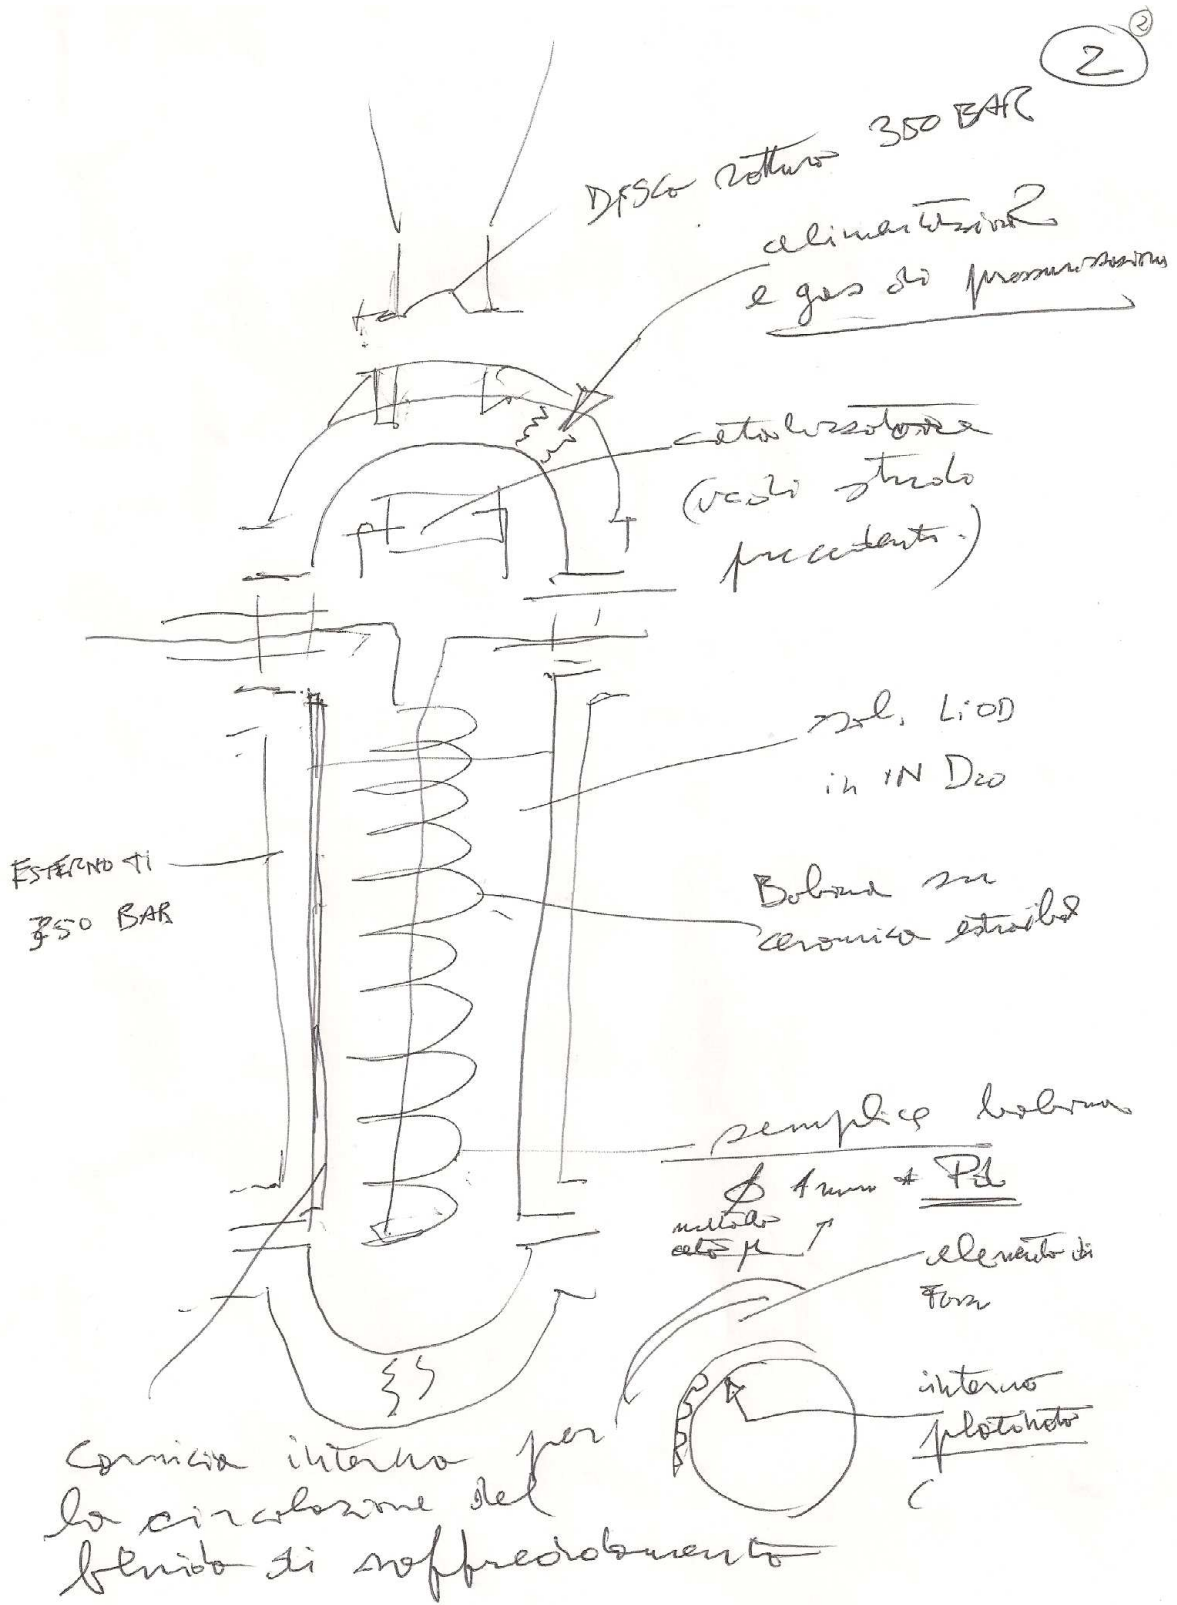 2
2
DISCO rottura 350 BAR
alimentazione
e gas di pressurizzazione
catalizzatore
(vedi studo
precedente.)
sol. LiOD
in 1N D2O
ESTERNO Ti
350 BAR
Bobina su
ceramica estraibile
semplice bobina
ϕ 1 mm Pd
metodo
elemento di
interno
platinato
(
Camicia interna per
la circolazione del
fluido di raffreddamento